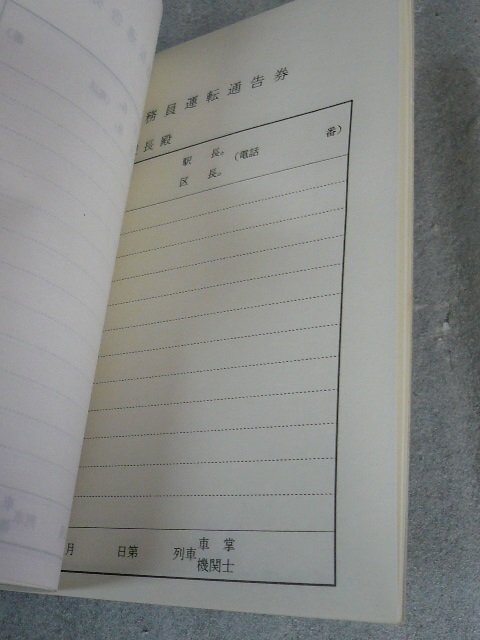 務員運転通告券
長殿
駅 長 (電話 番)
区 長
月 日第 列車 車 掌
機関士